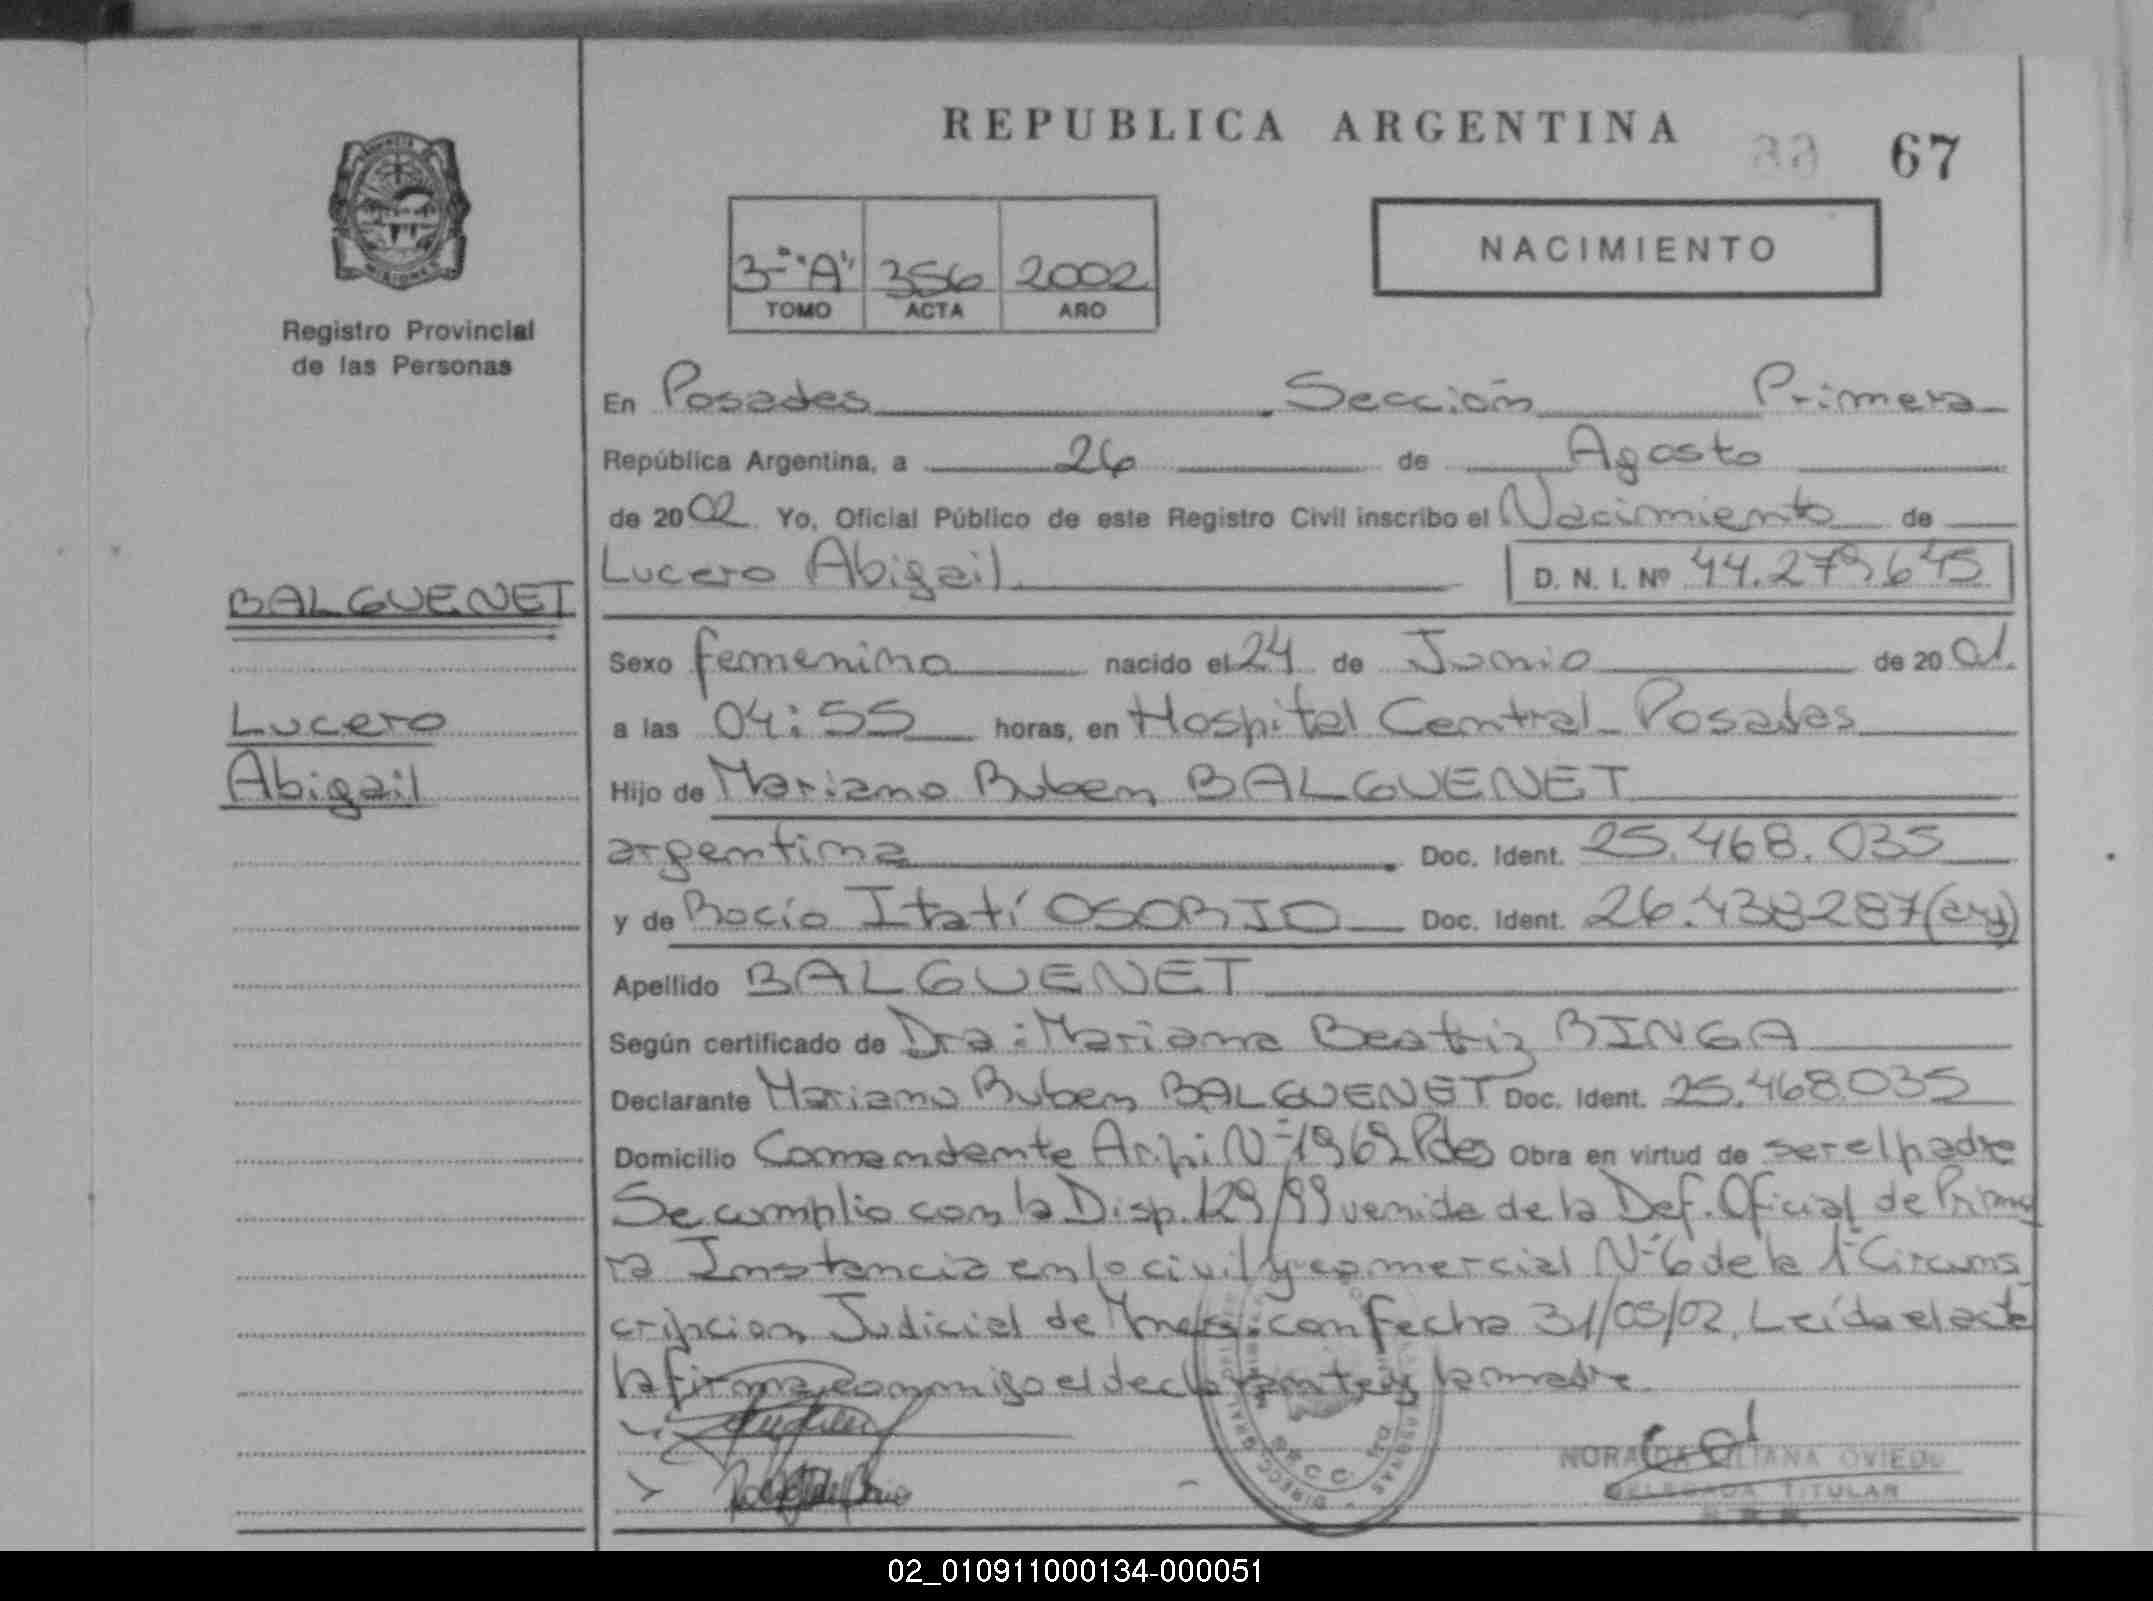 REPUBLICA ARGENTINA
67
NACIMIENTO
3-"A" 356 2002
TOMO ACTA AÑO
Registro Provincial
de las Personas
En Posadas Sección Primera
República Argentina, a 26 de Agosto
de 2002 Yo, Oficial Público de este Registro Civil inscribo el Nacimiento de
Lucero Abigail D. N. I. Nº 44.279.645
BALGUENET
Sexo femenino nacido el 24 de Junio de 2001.
Lucero
a las 04:55 horas, en Hospital Central - Posadas
Abigail
Hijo de Mariano Ruben BALGUENET
argentina Doc. Ident. 25.468.035
y de Rocío Itatí OSORIO Doc. Ident. 26.438287(arg)
Apellido BALGUENET
Según certificado de Dra: Mariana Beatriz BINGA
Declarante Mariano Ruben BALGUENET Doc. Ident. 25.468.035
Domicilio Comandante Nº 1969 Pdas Obra en virtud de ser el padre
Se cumplio con la Disp. 129/99 venida de la Def. Oficial de Prime
ra Instancia en lo civil y comercial Nº 6 de la 1º Circuns
cripcion Judicial de con fecha 31/05/02. Leída el acta
la firma conmigo el declarante y la madre.
LILIANA OVIEDO
DELEGADA TITULAR
02_010911000134-000051